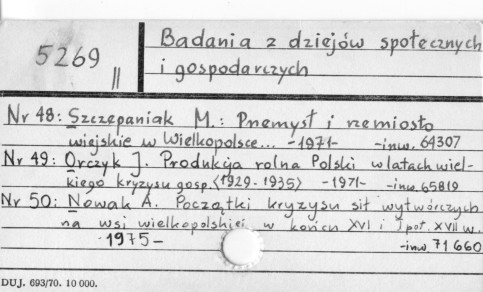 5269 II
Badania z dziejów społecznych
i gospodarczych
Nr 48: Szczepaniak M.: Przemysł i rzemiosło
wiejskie w Wielkopolsce... -1971- -inw. 64307
Nr 49: Orczyk J. Produkcja rolna Polski w latach wiel-
kiego kryzysu gosp. <1929-1935> -1971- -inw. 65819
Nr 50: Nowak A. Początki kryzysu sił wytwórczych
na wsi wielkopolskiej w końcu XVI i I poł. XVII w.
-1975- -inw. 71660
DUJ. 693/70. 10 000.